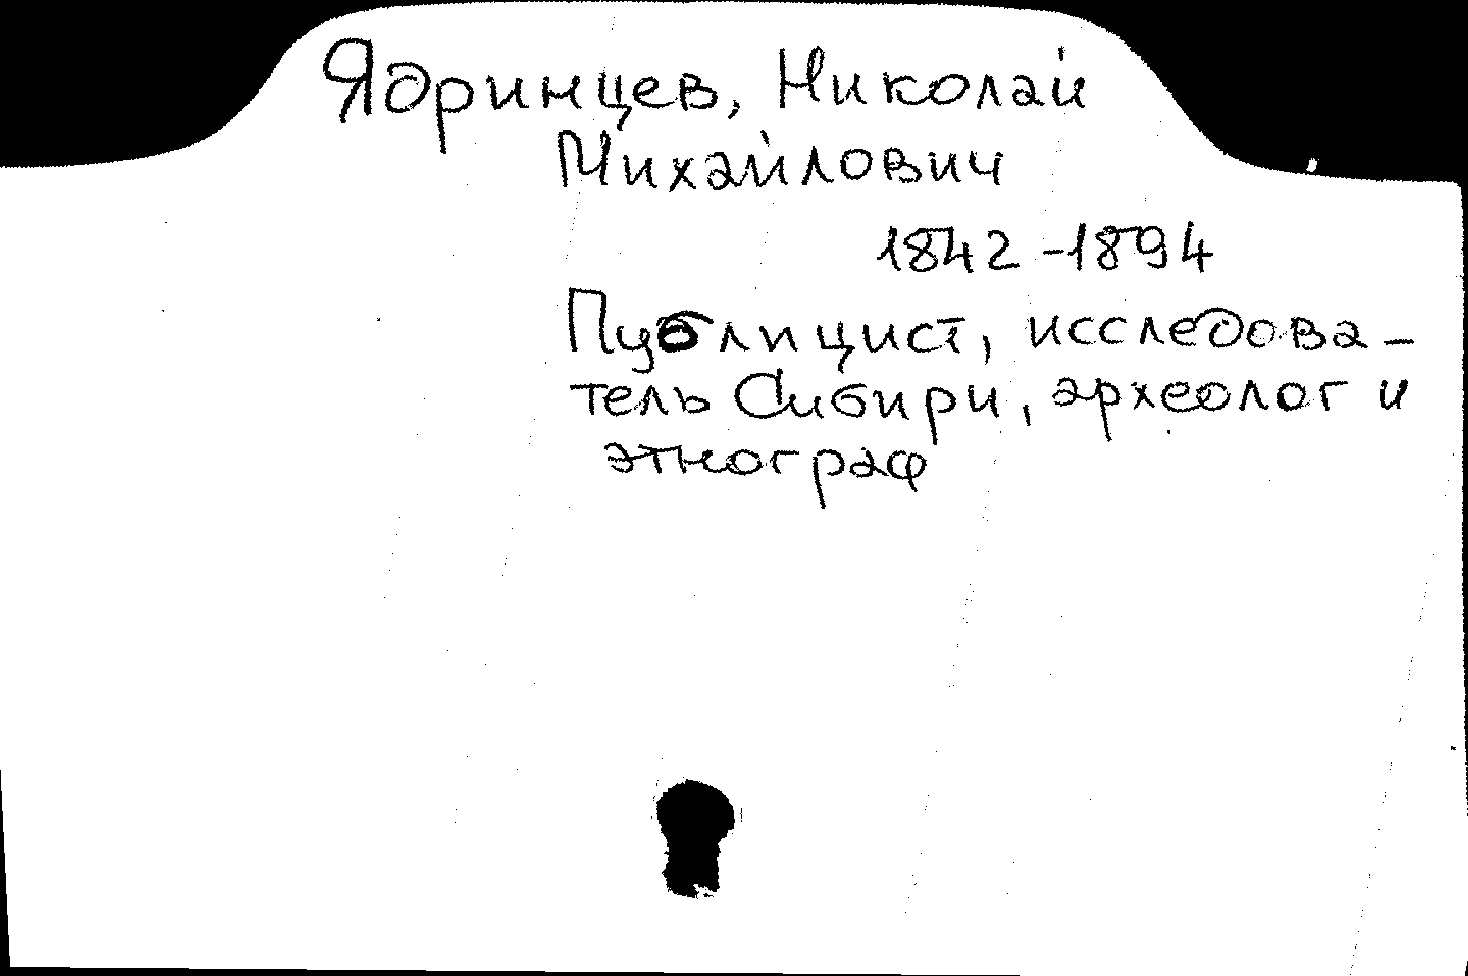 Ядринцев, Николай
Михайлович
1842-1894
Публицист, исследова-
тель Сибири, археолог и
этнограф